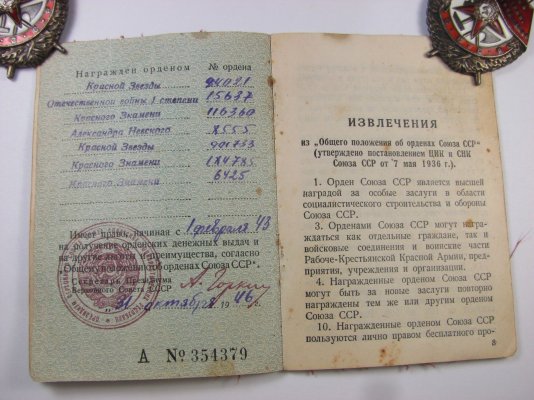 Награжден орденом № ордена
Красной Звезды
Отечественной войны I степени 15637
Красного Знамени 116360
Александра Невского
Красной Звезды
Красного Знамени
Красного Знамени 6425
Имеет право, начиная с 1 февраля 43
на получение орденских денежных выдач и
на другие льготы и преимущества, согласно
„Общему положению об орденах Союза ССР“.
Секретарь Президиума
Верховного Совета СССР А. Горкин
„31“ октября 1946 г.
А № 354379
ИЗВЛЕЧЕНИЯ
из „Общего положения об орденах Союза ССР“
(утверждено постановлением ЦИК и СНК
Союза ССР от 7 мая 1936 г.).
1. Орден Союза ССР является высшей
наградой за особые заслуги в области
социалистического строительства и обороны
Союза ССР.
3. Орденами Союза ССР могут награ-
ждаться как отдельные граждане, так и
войсковые соединения и воинские части
Рабоче-Крестьянской Красной Армии, пред-
приятия, учреждения и организации.
4. Награжденные орденом Союза ССР
могут быть за новые заслуги повторно
награждены тем же или другим орденом
Союза ССР.
10. Награжденные орденом Союза ССР
пользуются лично правом бесплатного про-
3